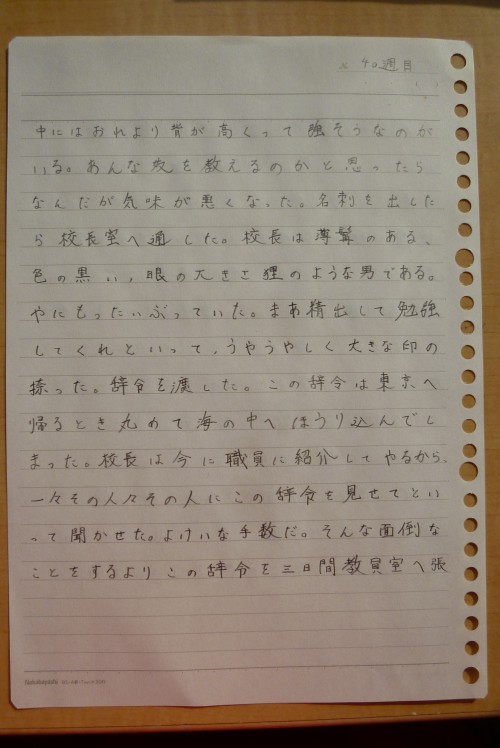 × 40週目
中にはおれより背が高くって強そうなのが
いる。あんな奴を教えるのかと思ったら
なんだが気味が悪くなった。名刺を出した
ら校長室へ通した。校長は薄髯のある、
色の黒い、眼の大きな狸のような男である。
やにもったいぶっていた。まあ精出して勉強
してくれといって、うやうやしく大きな印の
捺った。辞令を渡した。この辞令は東京へ
帰るとき丸めて海の中へほうり込んでし
まった。校長は今に職員に紹介してやるから、
一々その人々その人にこの辞令を見せてとい
って聞かせた。よけいな手数だ。そんな面倒な
ことをするよりこの辞令を三日間教員室へ張
Nakabayashi